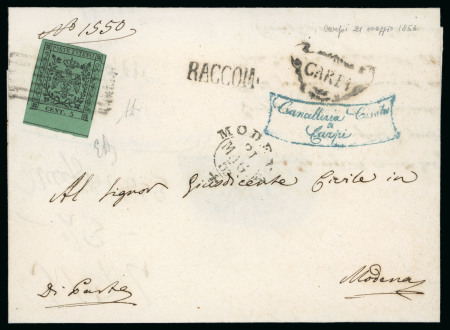 No 1550
Carpi 21 maggio 1852
CENT. 5
RACCOM.
CARPI
Cancelleria
di
Carpi
MODENA
Al Signor Giusdicente Civile in
Di Parte
Modena